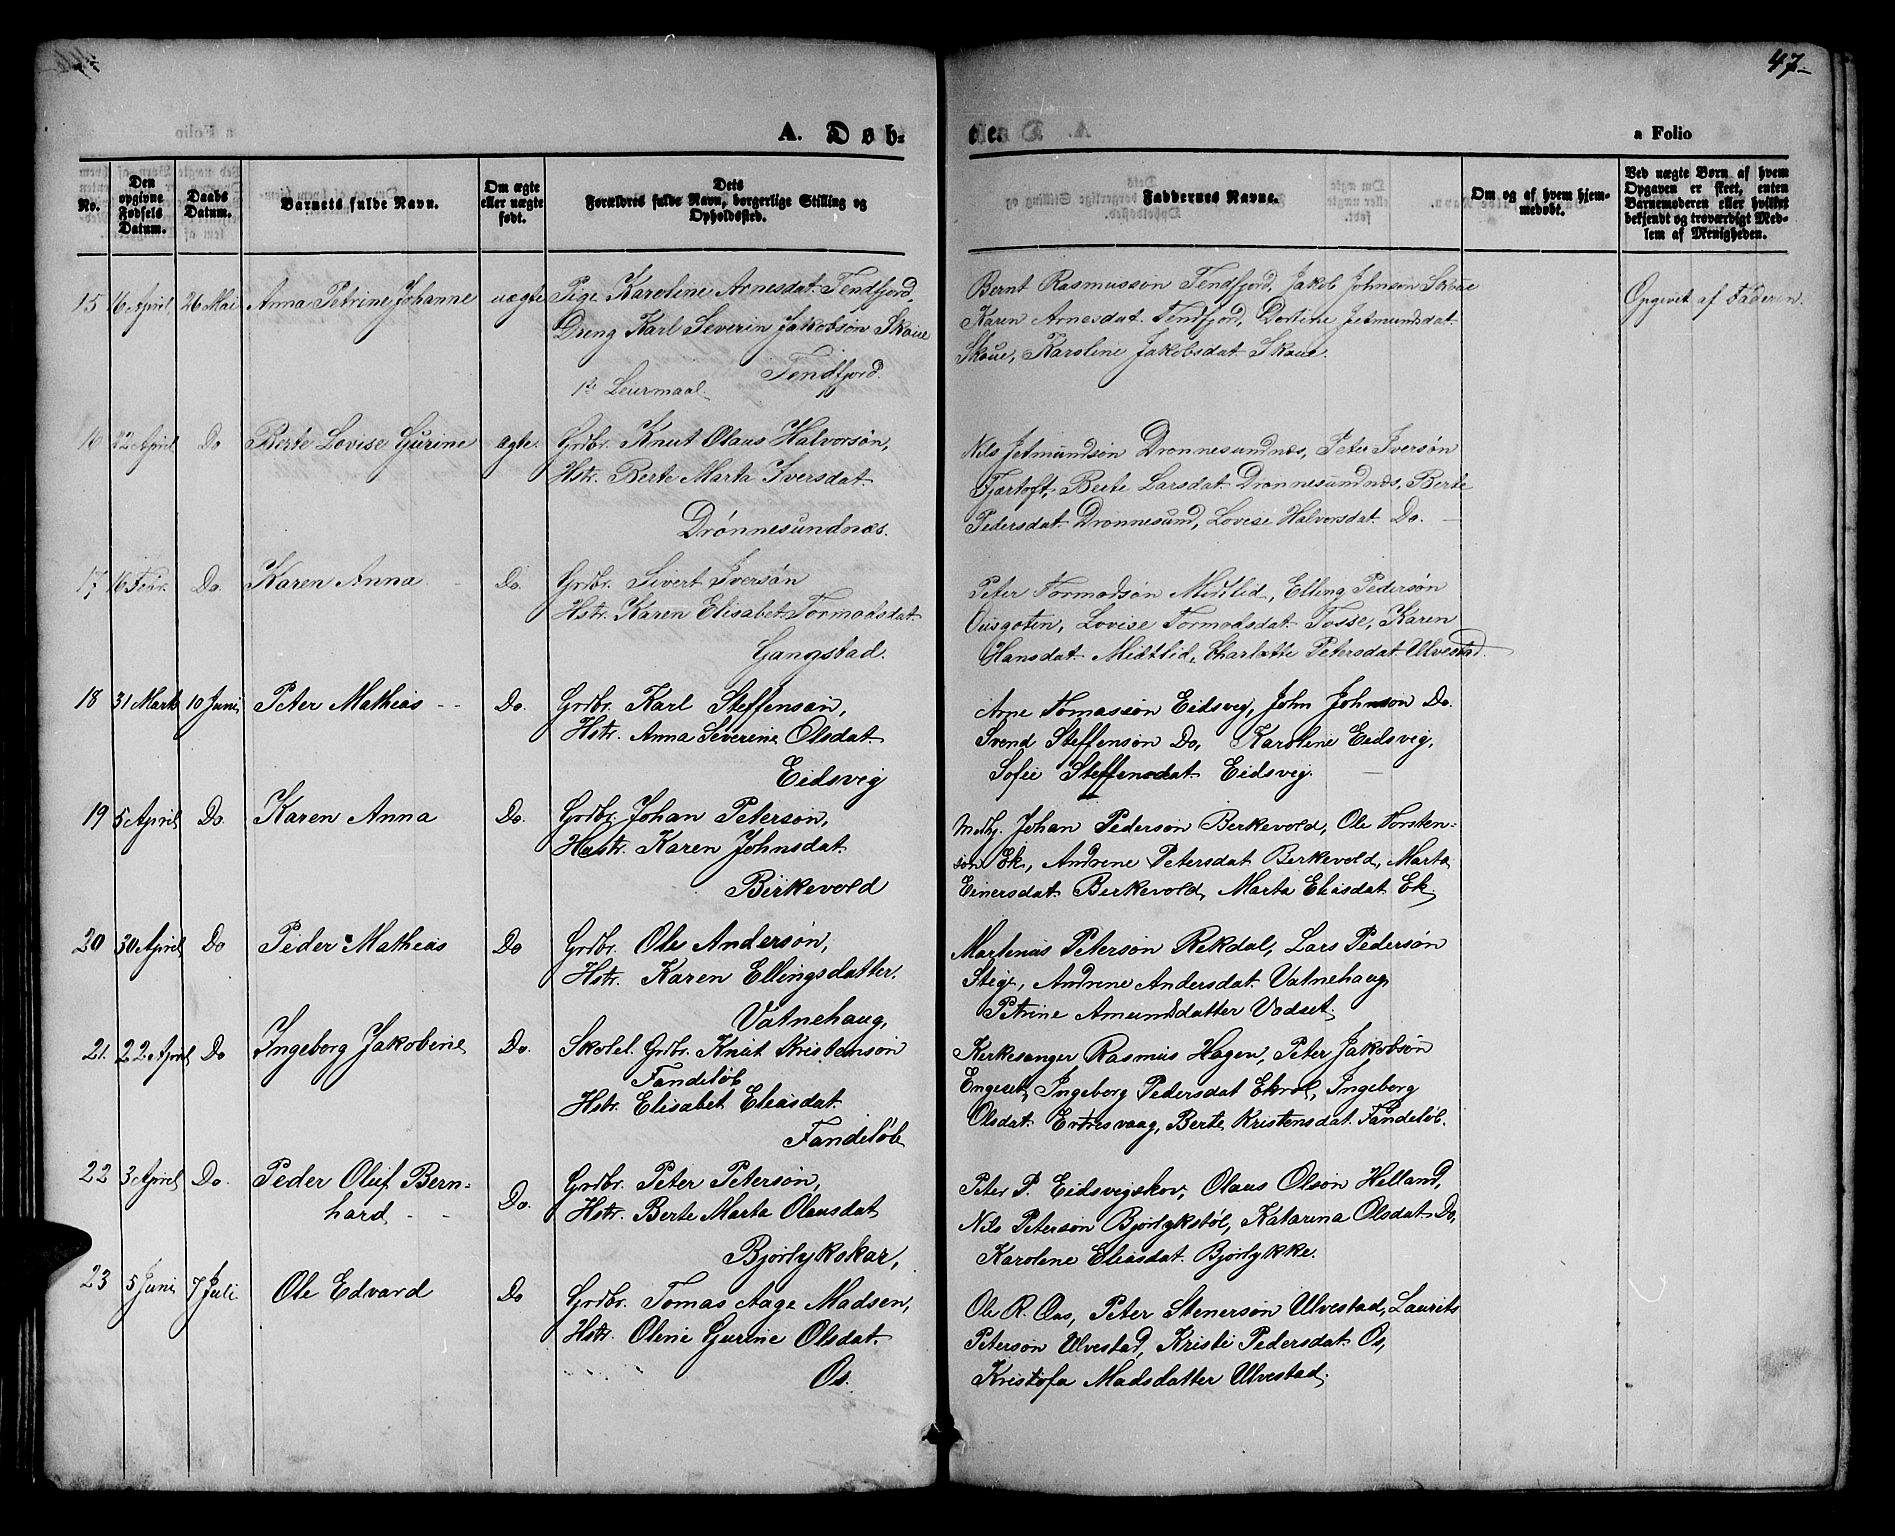 47
A. Døb-
elen
a Folio
No.
Den opgivne Fødsels Datum.
Daabs Datum.
Barnets fulde Navn.
Om ægte eller uægte født.
Dets Forældres fulde Navn, borgerlige Stilling og Opholdssted.
Faddernes Navne.
Om og af hvem hjemmedøbt.
Ved uægte Børn af hvem Opgaven er skeet, enten Barnemoderen eller hvilket bekjendt og troværdigt Medlem af Menigheden.
15 16 April 26 Mai Anna Petrine Johanne uægte Pige Karoline Arnesdat. Tendfjord,
Dreng Karl Severin Jakobsøn Skoue
Tendfjord.
1ste Leiermaal.
Bernt Rasmussøn Tendfjord, Jakob Johnsøn Skoue
Karen Arnesdat. Tendfjord, Dortine Jetmundsdat.
Skoue, Karoline Jakobsdat. Skoue.
Opgivet af Faderen.
16 22 April Do Berte Lovise Gurine ægte. Grdbr. Knut Olaus Halvorsøn,
Hstr. Berte Marta Iversdat.
Drønnesundnæs.
Nils Jetmundsøn Drønnesundnæs, Peter Iversøn
Fjærtoft, Berte Larsdat. Drønnesundnæs, Berte
Pedersdat. Drønnesund, Lovise Halvorsdat. Do.
17 16 Febr. Do. Karen Anna Do. Grdbr. Sivert Iversøn
Hstr. Karen Elisabet Tormodsdat.
Gangstad.
Peter Tormodsøn Midtlid, Elling Pedersøn
Ousgoten, Lovise Tormodsdat. Tosse, Karen
Hansdat. Midtlid, Charlotte Petersdat. Ulvestad.
18 31 Marts 10 Juni Peter Mathias Do. Grdbr. Karl Steffensøn,
Hstr. Anna Severine Olsdat.
Eidsvig
Arne Tomassøn Eidsvig, John Johnson Do.
Svend Steffensøn Do, Karoline Eidsvig,
Sofie Steffensdat. Eidsvig.
19 5 April Do. Karen Anna Do. Grdbr. Johan Petersøn,
Hustr. Karen Johnsdat.
Birkevold
Medhj. Johan Pedersøn Berkevold, Ole Torsten-
søn Ek, Andrine Petersdat Berkevold, Marte
Einersdat. Berkevold, Marta Eliasdat Ek.
20 30 April Do Peder Mathias Do Grdbr. Ole Andersøn,
Hstr. Karen Ellingsdatter.
Vatnehaug,
Martenus Petersøn Rekdal, Lars Pedersøn
Stige, Andrine Andersdat. Vatnehaug
Petrine Amundsdatter Vodset.
21. 22 April Do Ingeborg Jakobine Do. Skolel. Grdbr. Knut Kristensøn
Fandeløb
Hstr. Elisabet Eliasdat.
Fandeløb
Kirkesanger Rasmus Hagen, Peter Jakobsøn
Engeset, Ingeborg Pedersdat Ekrol, Ingeborg
Olsdat. Entresvaag, Berte Kristensdat. Fandeløb.
22 3 April Do. Peder Oluf Bern-
hard Do. Grdbr. Peter Petersøn,
Hstr. Berte Marta Olausdat
Bjørlykskar,
Peter P. Eidsvigskov, Olaus Olsøn Helland,
Nils Petersøn Bjørlykstøl, Katarina Olsdat. Do,
Karoline Eliasdat. Bjørlykke.
23 5 Juni 7 Juli Ole Edvard Do Grdbr. Tomas Aage Madsen,
Hstr. Oline Gurine Olsdat.
Os.
Ole R. Aas, Peter Stenersøn Ulvestad, Laurits
Petersøn Ulvestad, Kristi Pedersdat. Os,
Kristofa Madsdatter Ulvestad.